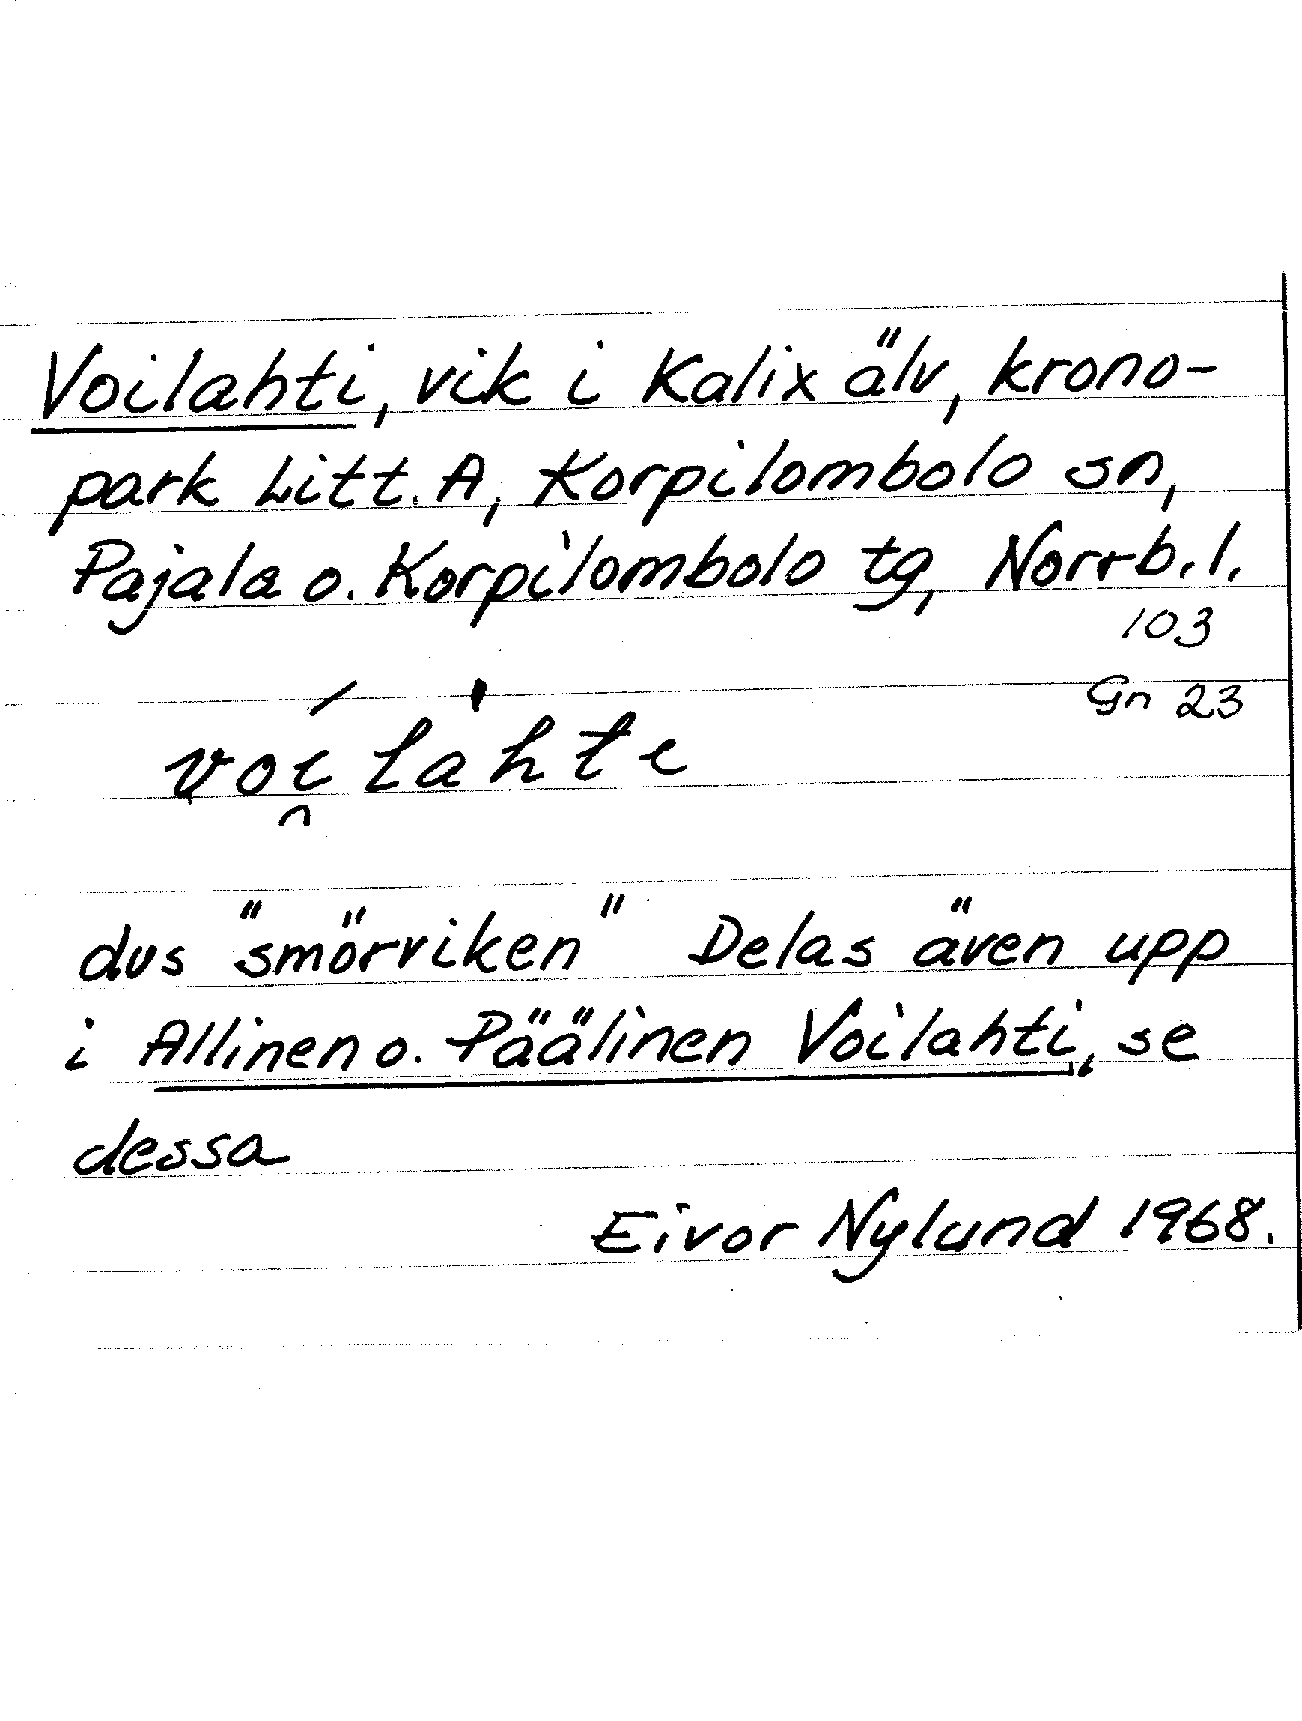 Voilahti, vik i Kalix älv, krono-
park Litt. A, Korpilombolo sn,
Pajala o. Korpilombolo tg, Norrb. l.
103
Gn 23
voi̯ láhte
dvs "smörviken" Delas även upp
i Allinen o. Päälinen Voilahti, se
dessa
Eivor Nylund 1968.